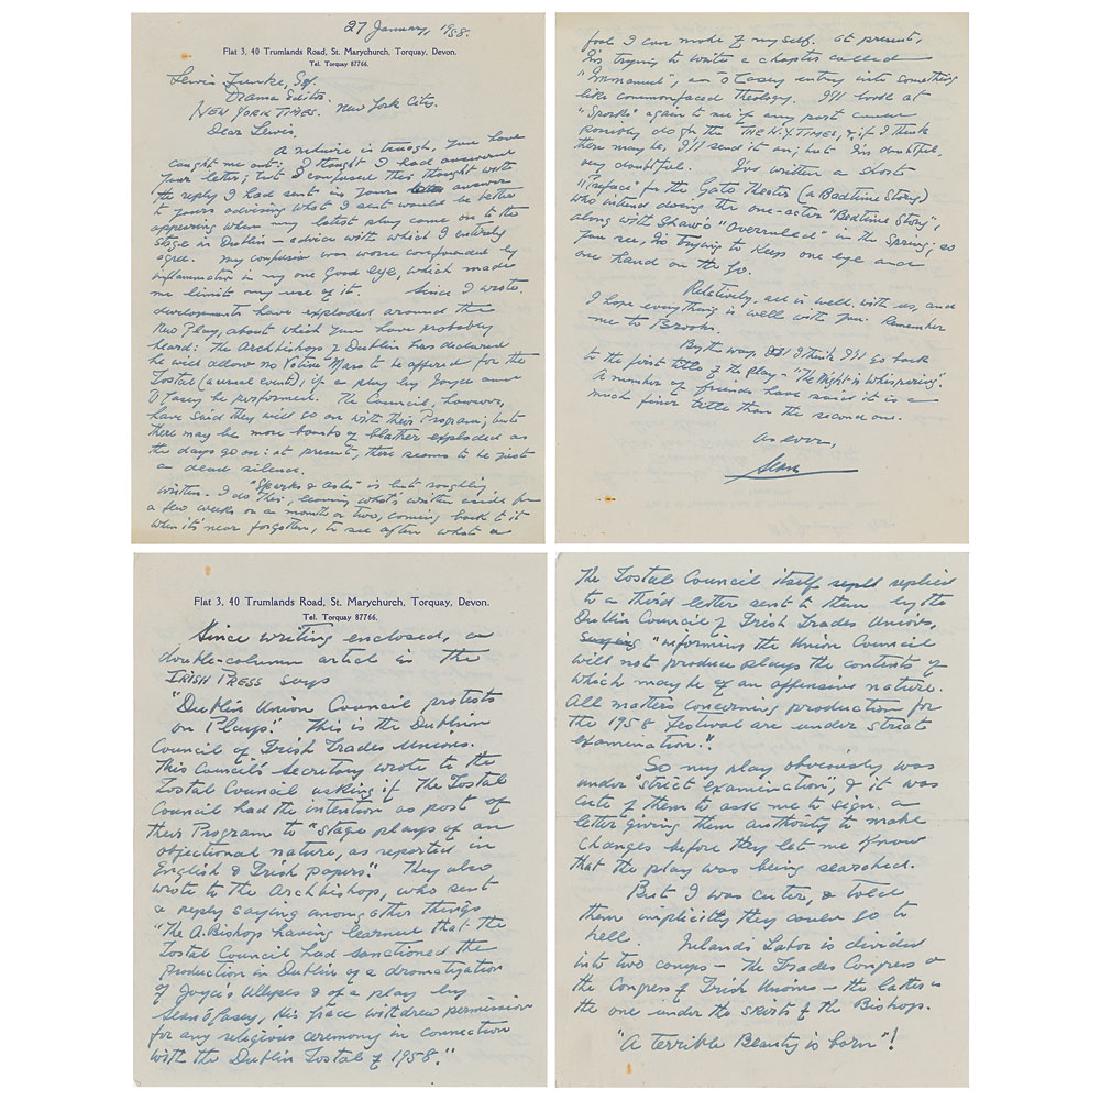 27 January, 1958.
Flat 3, 40 Trumlands Road, St. Marychurch, Torquay, Devon.
Tel. Torquay 87766.
Lewis Funke, Esq.
Drama Editor
NEW YORK TIMES. New York City.
Dear Lewis.
A is you have
caught me out: I thought I had answered
your letter; but I confused this thought with
the reply I had sent in yours answer
to yours advising what I sent would be better
appearing when my latest play come on to the
stage in Dublin – advice with which I entirely
agree. My confusion was worse confounded by
inflammation in my one good eye, which made
me limit my use of it. Since I wrote,
developments have exploded around the
New Play, about which you have probably
heard: The Archbishop of Dublin has declared
he will allow no Votive Mass to be offered for the
Tostal (a usual event), if a play by Joyce and
O'Casey be performed. The Council, however,
have said they will go on with their Program; but
there may be more bombs of blather exploded as
the days go on: at present, there seems to be just
a dead silence.
"Sparks & Ashes" is but roughly
written. I do this, leaving what's written aside for
a few weeks or a month or two, coming back to it
when it's near forgotten, to see after what a
fool I can make of myself. At present,
I'm trying to write a chapter called
"Immanuel", an O'Casey entry into something
like commonfaced theology. I'll look at
"Sparks" again to see if any part
possibly do for the THE N.Y. TIMES, & if I think
there may be, I'll send it on; but I'm doubtful,
very doubtful. I've written a short
"Preface" for the Gate Theater (a Bedtime Story)
who intend doing the one-acter "Bedtime Story",
along with Shaw's "Overruled" in the Spring; so
you see, I'm trying to keep one eye and
one hand on the go.
Relatively, all is well with us, and
I hope everything is well with you. Remember
me to Brooks.
By the way, I think I'll go back
to the first title of the play – "The Night is Whispering".
A number of friends have said it is a
much finer title than the second one.
As ever,
Sean
Flat 3, 40 Trumlands Road, St. Marychurch, Torquay, Devon.
Tel. Torquay 87766.
Since writing enclosed, a
double-column article in the
IRISH PRESS says
"Dublin Union Council protests
on Plays". This is the Dublin
Council of Irish Trades Unions.
This Council's Secretary wrote to the
Tostal Council asking if The Tostal
Council had the intention as part of
their Program to "stage plays of an
objectional nature, as reported in
English & Irish papers". They also
wrote to the Archbishop, who sent
a reply saying among other things
"The A.Bishop having learned that the
Tostal Council had sanctioned the
production in Dublin of a dramatization
of Joyce's Ulysses & of a play by
Sean O'Casey, His Grace withdrew permission
for any religious ceremony in connection
with the Dublin Tostal of 1958."
The Tostal Council itself repld replied
to a third letter sent to them by the
Dublin Council of Irish Trades Unions,
Saying "informing the Union Council
will not produce plays the contents of
which may be of an offensive nature.
All matters concerning production for
the 1958 Festival are under strict
examination."
So my play obviously was
under "strict examination", & it was
cute of them to ask me to sign a
letter giving them authority to make
changes before they let me know
that the play was being searched.
But I was cuter, & told
them implicitly they could go to
hell. Ireland's Labor is divided
into two camps – The Trades Congress &
the Congress of Irish Unions – the latter is
the one under the skirts of the Bishops.
"A Terrible Beauty is born"!